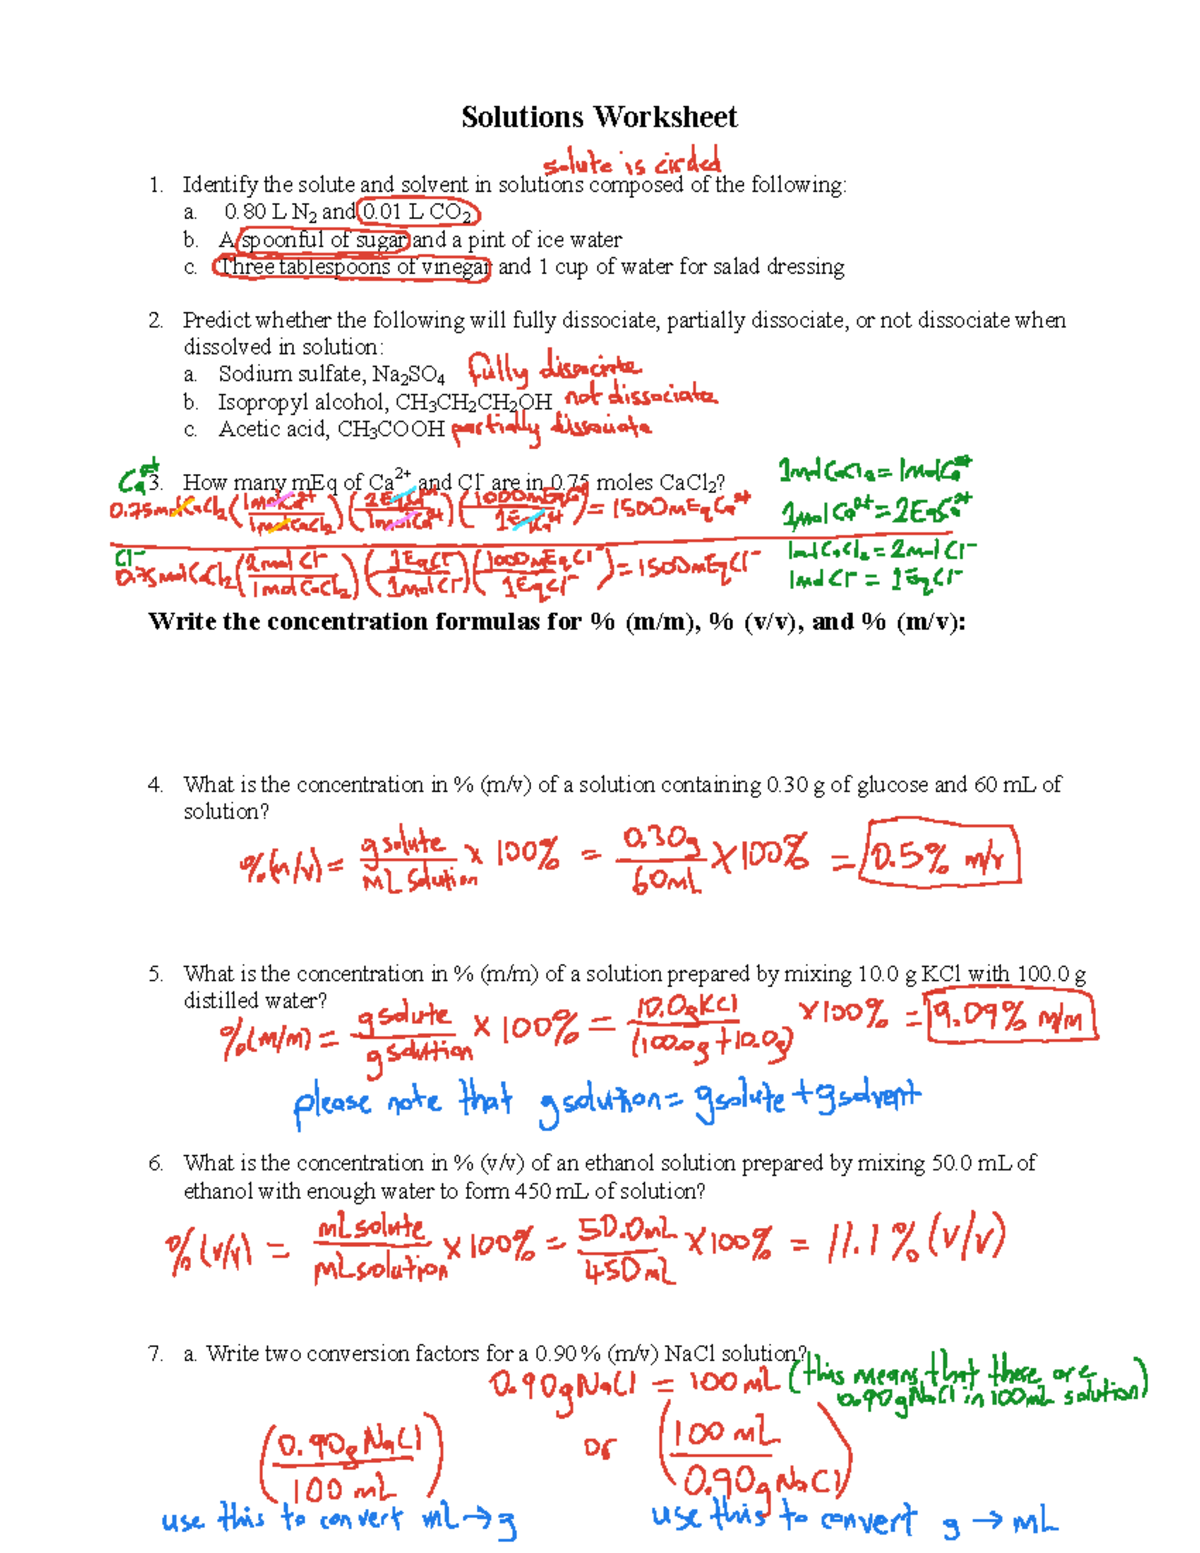 Solutions Worksheet
solute is circled
1. Identify the solute and solvent in solutions composed of the following:
a. 0.80 L N₂ and 0.01 L CO₂
b. A spoonful of sugar and a pint of ice water
c. Three tablespoons of vinegar and 1 cup of water for salad dressing
2. Predict whether the following will fully dissociate, partially dissociate, or not dissociate when
dissolved in solution:
a. Sodium sulfate, Na₂SO₄ fully dissociate
b. Isopropyl alcohol, CH₃CH₂CH₂OH not dissociate
c. Acetic acid, CH₃COOH partially dissociate
3. How many mEq of Ca²⁺ and Cl⁻ are in 0.75 moles CaCl₂?
Ca²⁺
0.75molCaCl₂ (1molCa²⁺/1molCaCl₂) (2EqCa²⁺/1molCa²⁺) (1000mEqCa²⁺/1EqCa²⁺) = 1500mEqCa²⁺
1molCaCl₂ = 1molCa²⁺
1molCa²⁺ = 2EqCa²⁺
Cl⁻
0.75molCaCl₂ (2molCl⁻/1molCaCl₂) (1EqCl⁻/1molCl⁻) (1000mEqCl⁻/1EqCl⁻) = 1500mEqCl⁻
1molCaCl₂ = 2molCl⁻
1molCl⁻ = 1EqCl⁻
Write the concentration formulas for % (m/m), % (v/v), and % (m/v):
4. What is the concentration in % (m/v) of a solution containing 0.30 g of glucose and 60 mL of
solution?
%(m/v) = g solute/mL solution x 100% = 0.30g/60mL x 100% = 0.5% m/v
5. What is the concentration in % (m/m) of a solution prepared by mixing 10.0 g KCl with 100.0 g
distilled water?
%(m/m) = g solute/g solution x 100% = 10.0gKCl/(100.0g+10.0g) x100% = 9.09% m/m
please note that g solution = g solute + g solvent
6. What is the concentration in % (v/v) of an ethanol solution prepared by mixing 50.0 mL of
ethanol with enough water to form 450 mL of solution?
%(v/v) = mL solute/mL solution x 100% = 50.0mL/450mL x 100% = 11.1% (v/v)
7. a. Write two conversion factors for a 0.90 % (m/v) NaCl solution?
0.90g NaCl = 100 mL (this means that there are
0.90g NaCl in 100mL solution)
(0.90g NaCl/100 mL) or (100 mL/0.90g NaCl)
use this to convert mL → g
use this to convert g → mL